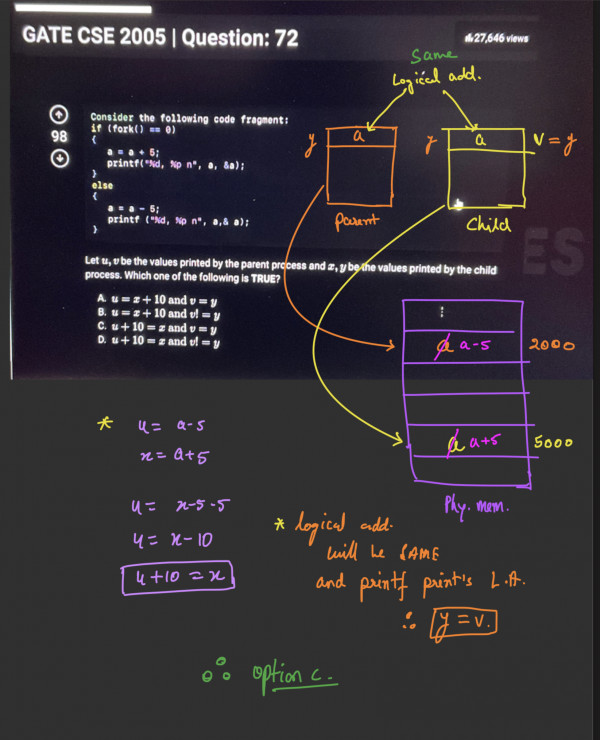 GATE CSE 2005 | Question: 72
27,646 views
Same
Logical add.
98
Consider the following code fragment:
if (fork() == 0)
{
a = a + 5;
printf("%d, %p n", a, &a);
}
else
{
a = a - 5;
printf ("%d, %p n", a,& a);
}
y a
y a v = y
parent
child
ES
Let u, v be the values printed by the parent process and x, y be the values printed by the child
process. Which one of the following is TRUE?
A. u = x + 10 and v = y
B. u = x + 10 and v! = y
C. u + 10 = x and v = y
D. u + 10 = x and v! = y
a a-5 2000
a a+5 5000
Phy. mem.
* u = a-5
x = a+5
u = x-5-5
u = x-10
u+10 = x
* logical add.
will be SAME
and printf print's L.A.
∴ y = v.
∴ option c.